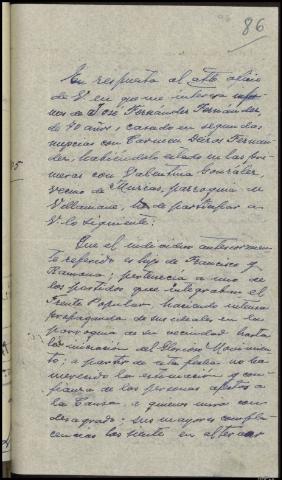 86
En respuesta al atto. oficio
de V. en que me interesa infor-
mes de José Fernández Fernández,
de 40 años, casado en segundas
nupcias con Carmen Fernán-
dez, habiéndolo estado en las pri-
meras con Valentina González,
vecino de Murias, parroquia de
Villamana, he de participar a
V. lo siguiente:
Que el individuo anteriormen-
te referido es hijo de Francisco y
Ramona; pertenecía a uno de
los partidos que integraban el
Frente Popular haciendo intensa
propaganda de sus ideales en la
parroquia de su vecindad hasta
la iniciación del Glorioso Movimien-
to; a partir de esta fecha no ha
merecido la estimación y con-
fianza de las personas afectas a
la Causa, a quienes mira con
desagrado; sus mayores compla-
cencias las siente en alternar